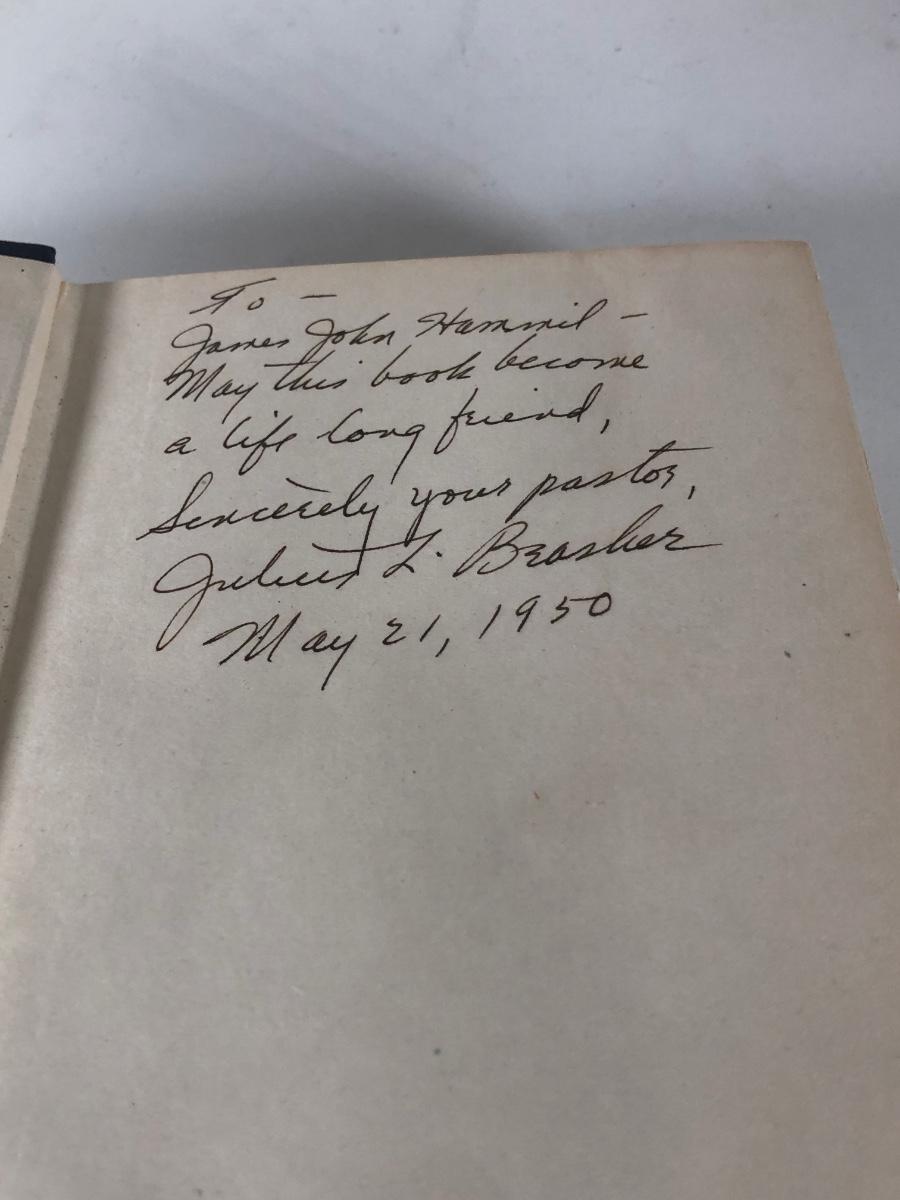 To —
James John Hammil —
May this book become
a life long friend,
Sincerely your pastor,
Julius L. Brasher
May 21, 1950